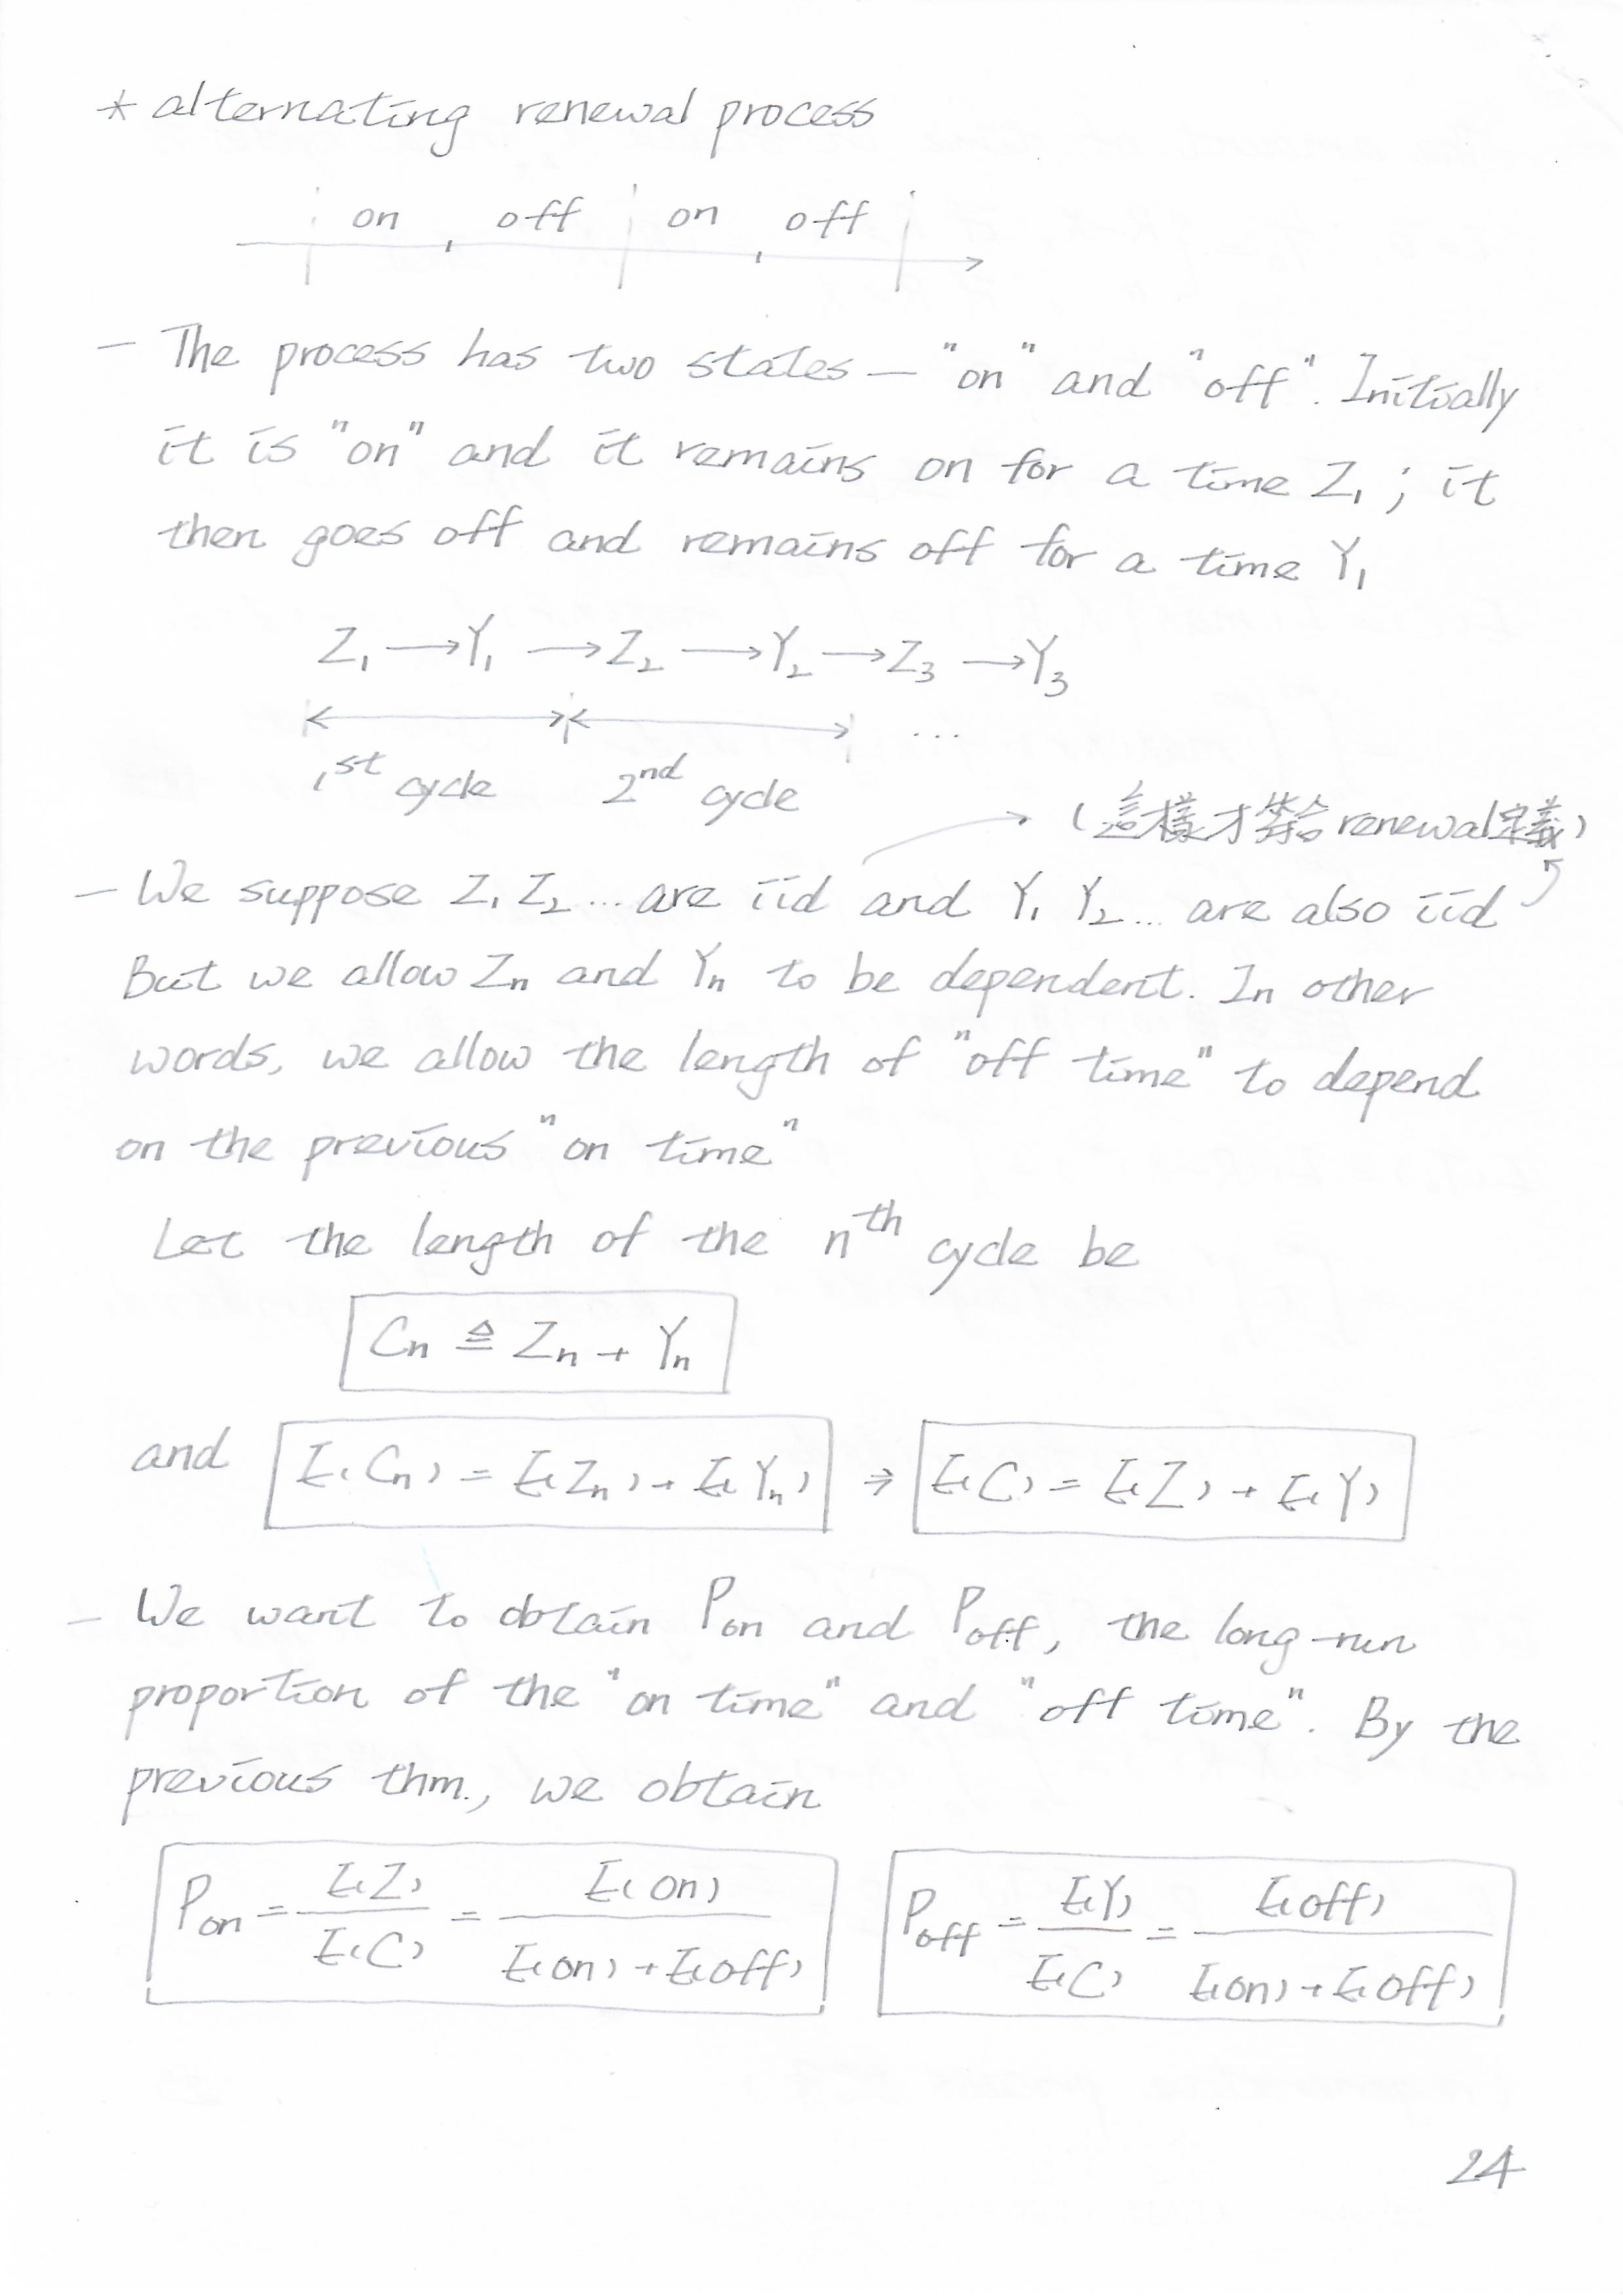 * alternating renewal process
on off on off
- The process has two states — "on" and "off". Initially
it is "on" and it remains on for a time Z₁ ; it
then goes off and remains off for a time Y₁
Z₁ → Y₁ → Z₂ → Y₂ → Z₃ → Y₃
...
1st cycle 2nd cycle
(這樣才符合 renewal 定義)
- We suppose Z₁ Z₂ ... are iid and Y₁ Y₂ ... are also iid
But we allow Zn and Yn to be dependent. In other
words, we allow the length of "off time" to depend
on the previous "on time"
Let the length of the nth cycle be
Cn ≜ Zn + Yn
and E(Cn) = E(Zn) + E(Yn) ⇒ E(C) = E(Z) + E(Y)
- We want to obtain Pon and Poff, the long-run
proportion of the "on time" and "off time". By the
previous thm., we obtain
Pon = E(Z) / E(C) = E(on) / E(on) + E(off) Poff = E(Y) / E(C) = E(off) / E(on) + E(off)
24